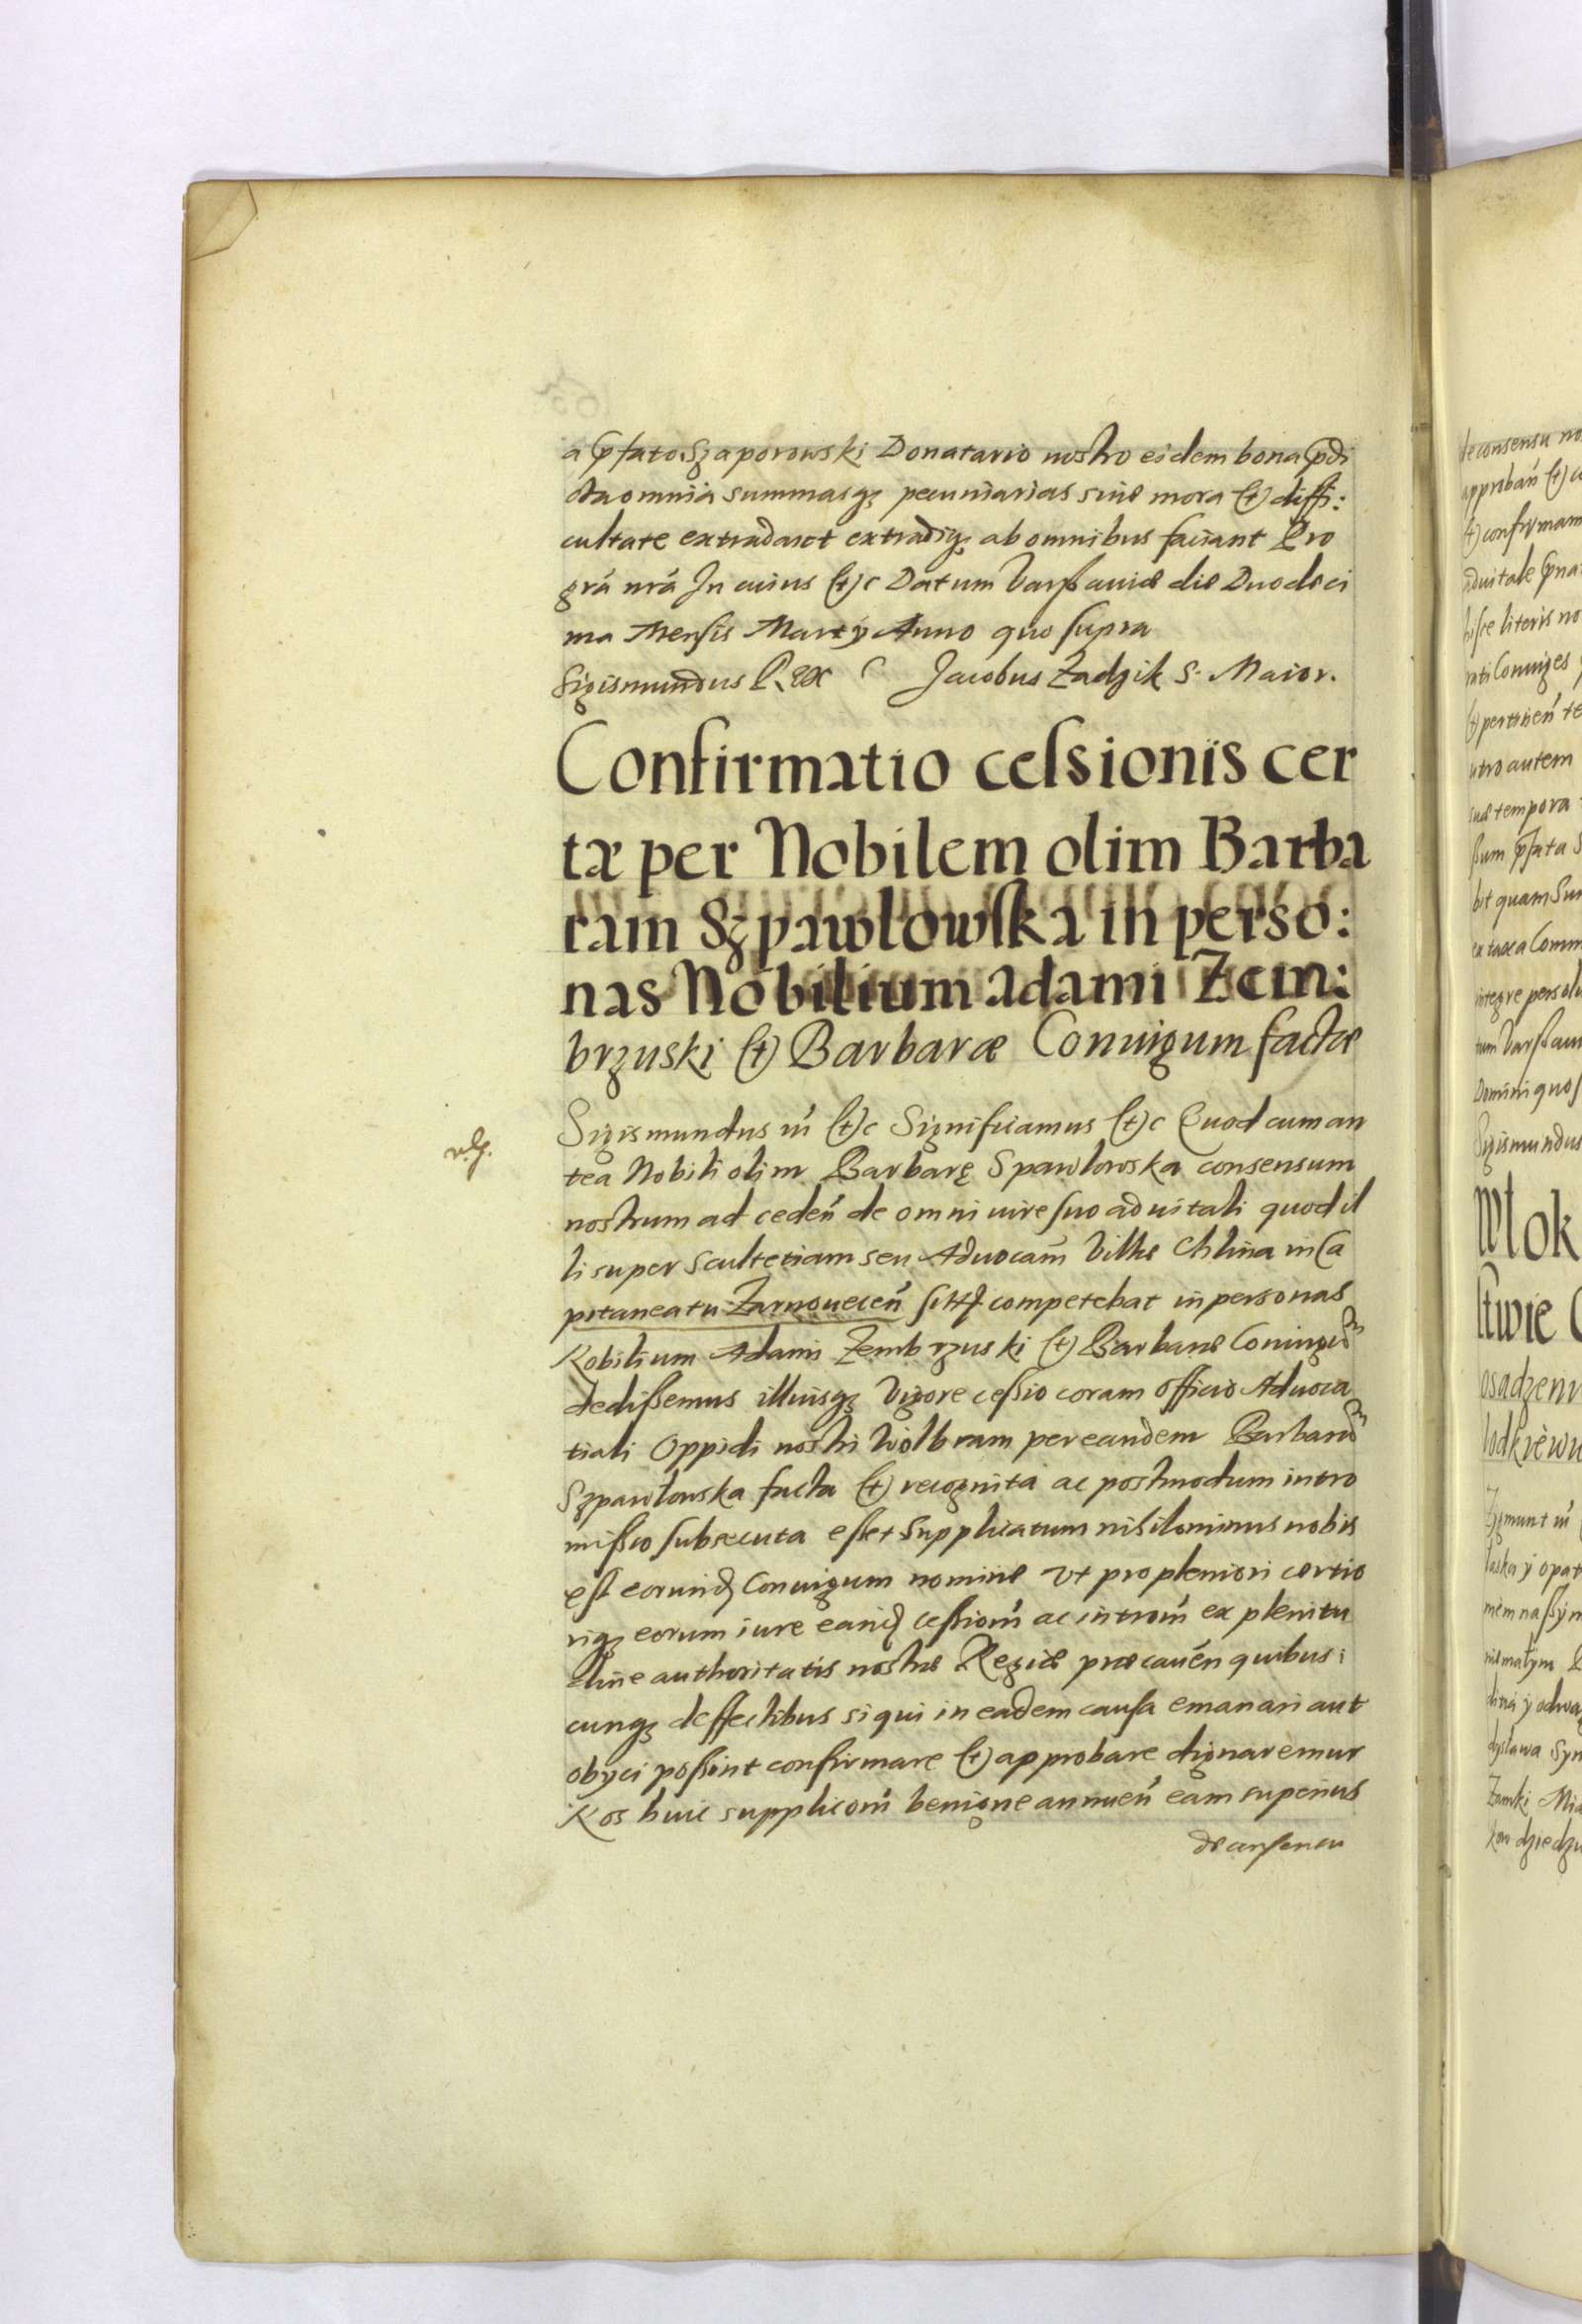 a pfato Szaporowski Donatario nostro eidem bona pdi
cta omnia summasqz pecuniarias sine mora et diffi:
cultate extradant extradiqz ab omnibus faciant Pro
grã nrã In cuius etc Datum Varssaviae die Duodeci
ma Mensis Martÿ Anno quo supra
Sigismundus Rex Jacobus Zadzik S. Maior.
Confirmatio cessionis cer
tæ per Nobilem olim Barba
ram Szpawłowska in perso:
nas Nobilium Adami Zem:
brzuski et Barbaræ Coniugum factæ
Sigismundus iii etc Significamus etc Quod cum an
tea Nobili olim Barbarę Spawlowska consensum
nostrum ad ceden de omni iure suo advitali quod il
li super Scultetiam seu Advocam Villae Chlina in Ca
pitaneatu Zarnouecen sitą competebat in personas
Nobilium Adami Zembrzuski et Barbarae Coniugum
dedissemus illiusqz vigore cessio coram officio Advoca
tiali Oppidi nostri Wolbram per eandem Barbaram
Szpawłowska facta et recognita ac postmodum intro
missio subsecuta esset Supplicatum nihilominus nobis
est eorund Coniugum nomine Vt pro pleniori certio
riqz eorum iure eand cessiom ac introm ex plenitu
dine authoritatis nostrae Regiae praecaven quibus:
cunqz deffectibus si qui in eadem causa emanari aut
obÿci possint confirmare et approbare dignaremur
Nos huic supplicom benigne annuen eam superius
de consensu